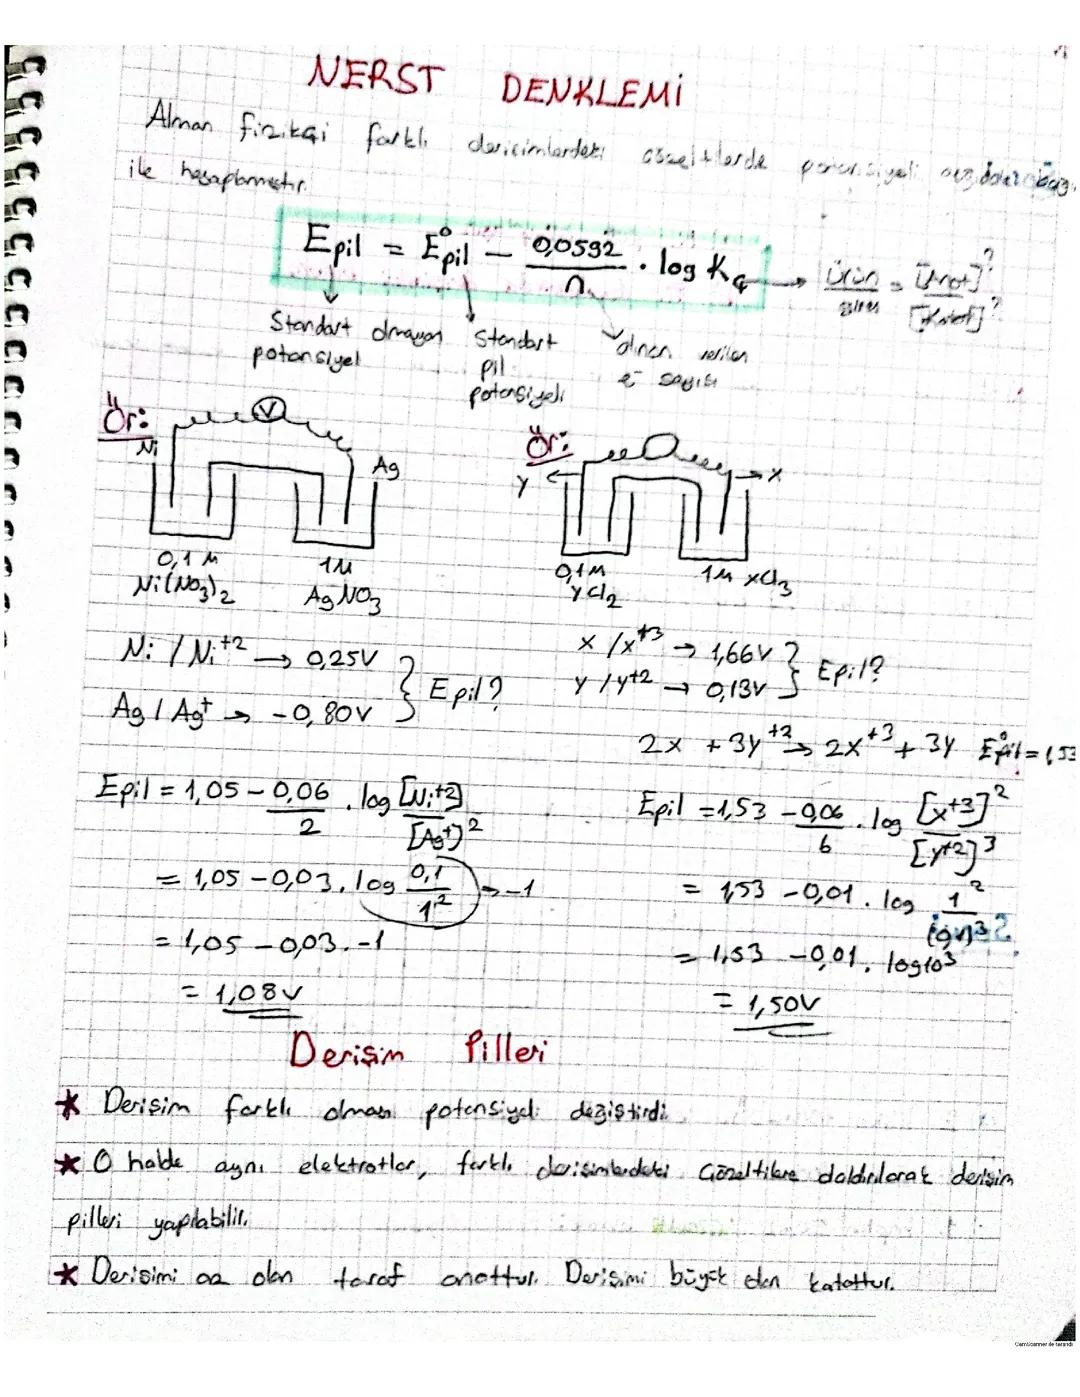 NERST DENKLEMİ
Alman fizikçi farklı derişimlerdeki çözeltilerde potansiyeli
ile hesaplanmıştır.
Epil = E°pil - 0,0592/n . log KG → Ürün/giren = [Anot]?/[Katot]?
Standart olmayan potansiyel
Standart pil potansiyeli
alınan verilen e⁻ sayısı
Ör:
Ni V Ag
0,1 M Ni(NO3)2
1M AgNO3
Ni / Ni+2 → 0,25V
Ag / Ag+ → -0,80V
Epil?
Epil = 1,05 - 0,06/2 . log [Ni+2]/[Ag+]2
= 1,05 - 0,03. log 0,1/1^2 → -1
= 1,05 - 0,03.-1
= 1,08V
Ör:
Y X
0,1M YCl2
1M XCl3
X / X+3 → 1,66V
Y / Y+2 → 0,13V
Epil?
2X + 3Y+2 → 2X+3 + 3Y E°pil = 1,53
Epil = 1,53 - 0,06/6 . log [X+3]2/[Y+2]3
= 1,53 - 0,01. log 1^2/(0,1)3
= 1,53 - 0,01. log10^3
= 1,50V
Derişim Pilleri
* Derişim farklı olması potansiyeli değiştirdi.
* O halde aynı elektrotlar, farklı derişimlerdeki çözeltilere daldırılarak derişim
pilleri yapılabilir.
* Derişimi az olan taraf anottur. Derişimi büyük olan katottur.
CamScanner ile tarandı